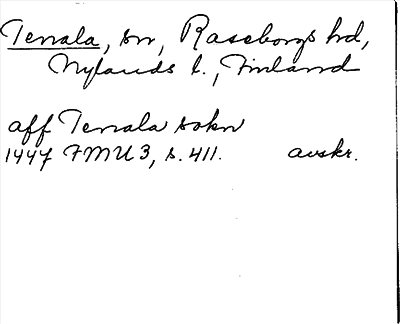 Tenala, sn, Raseborgs hd,
Nylands l., Finland
aff Tenala sokn
1447 FMU 3, s. 411. avskr.